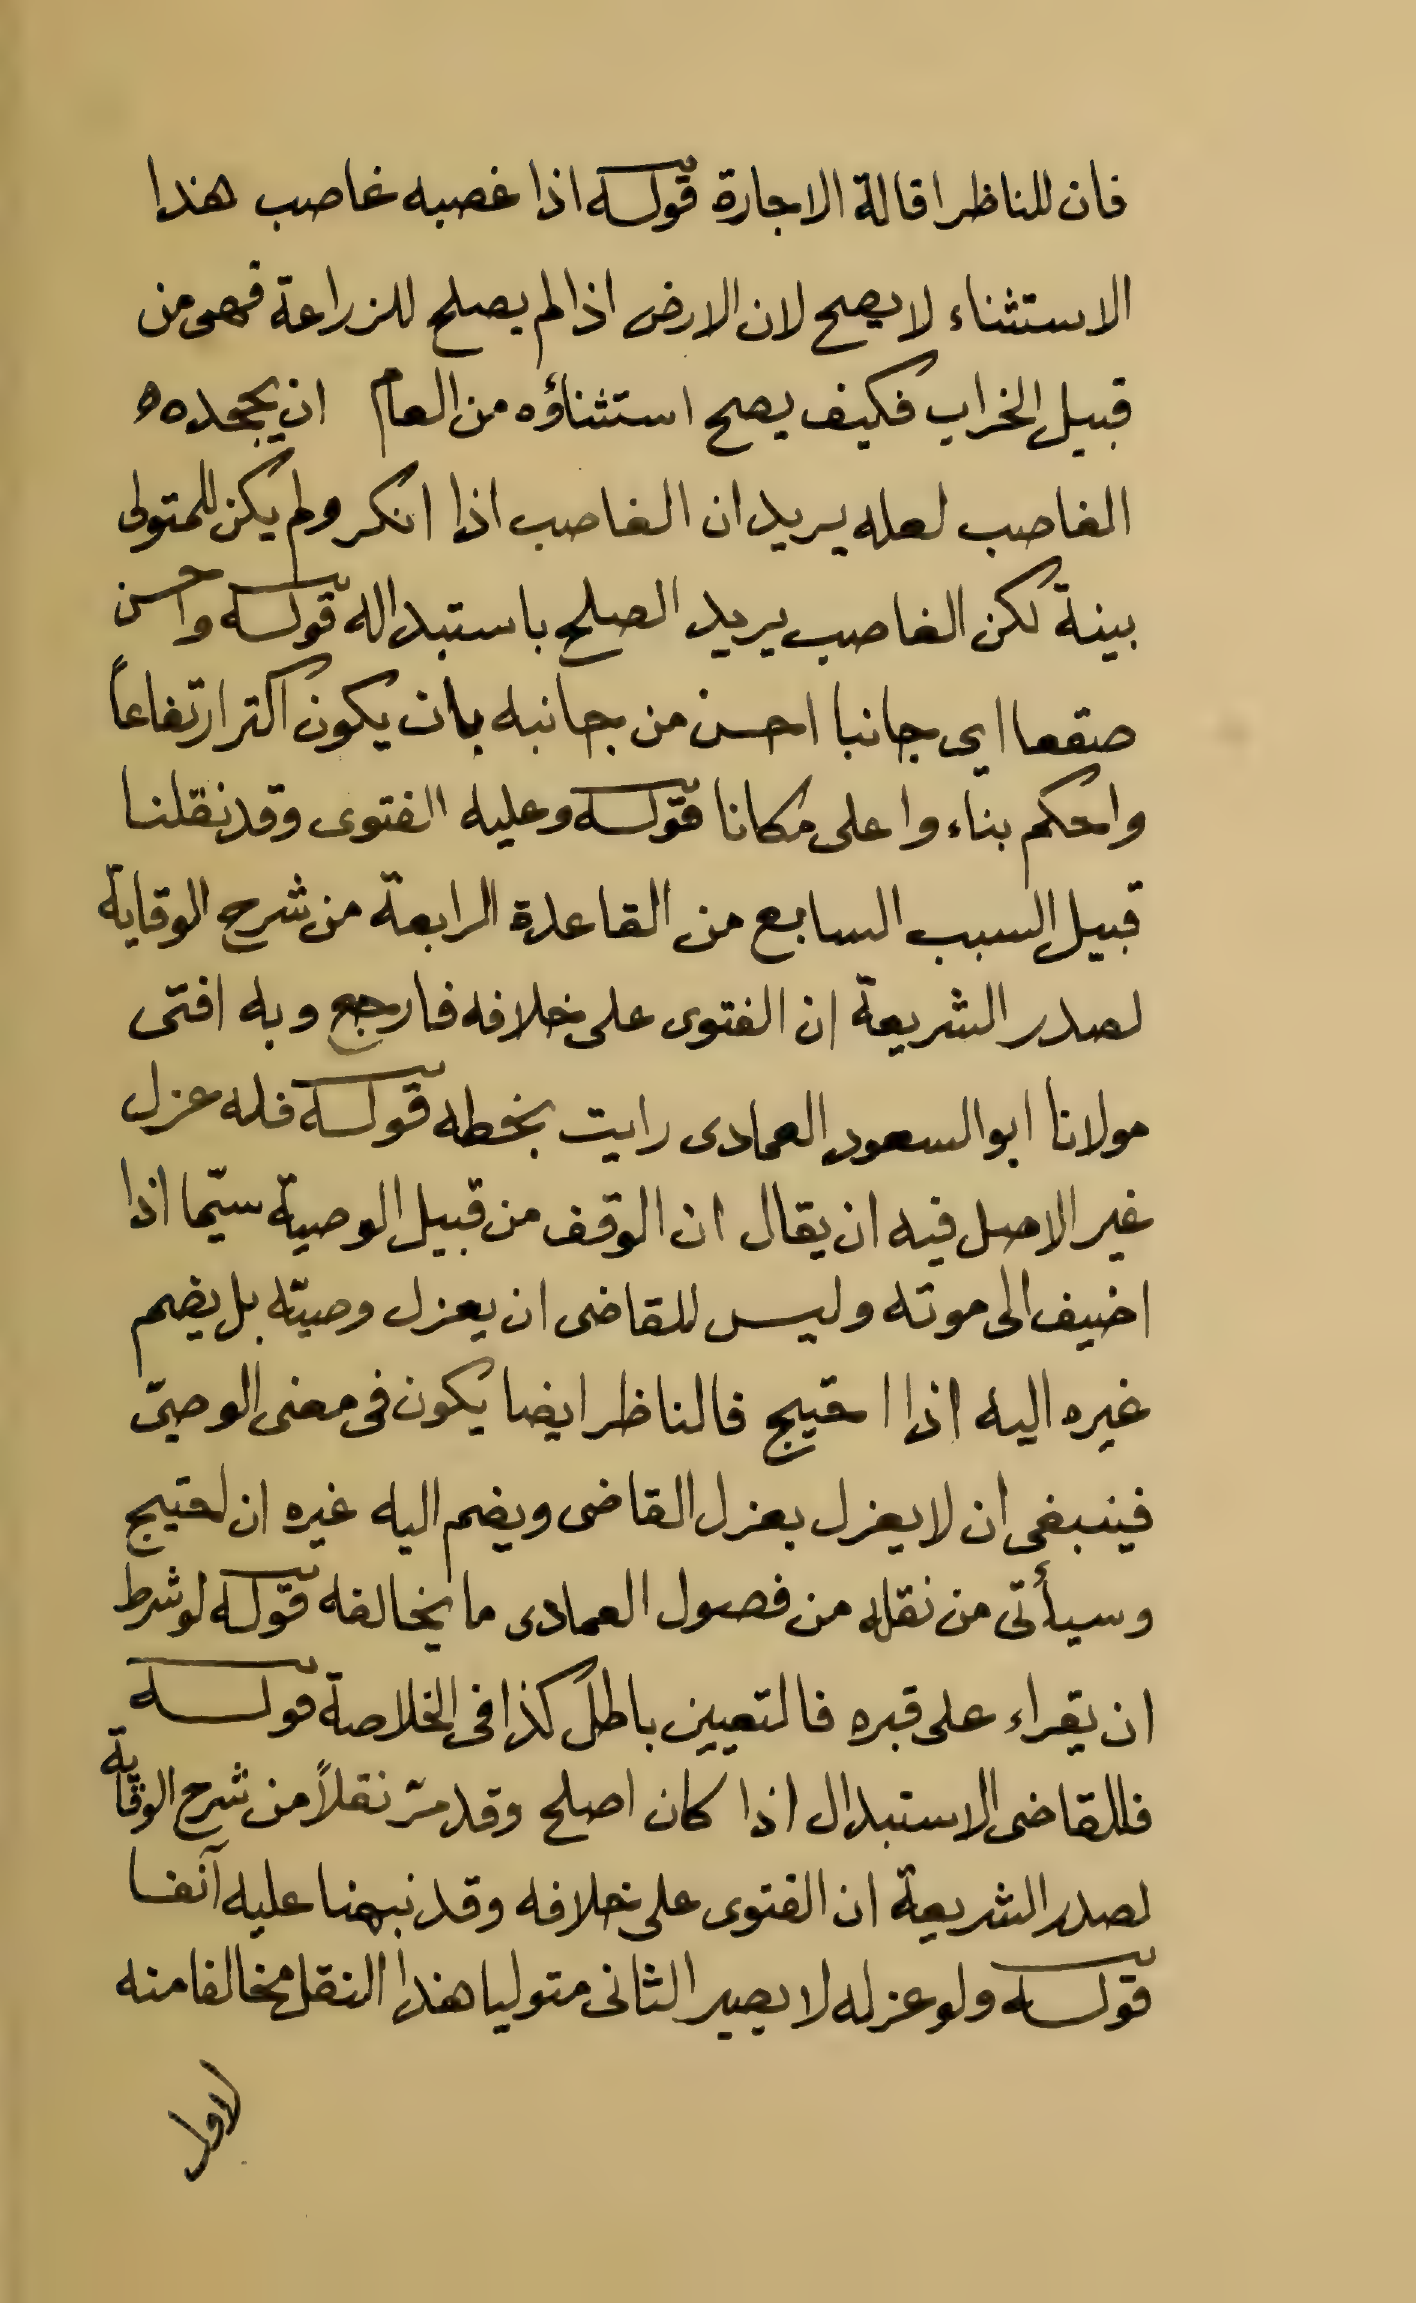 فان للناظر اقالة الاجارة قوله اذا غصبه غاصب هذا
الاستثناء لا يصح لان الارض اذا لم يصلح للزراعة فهى من
قبيل الخراب فكيف يصح استثناؤه من العام ان يجحده ه
الغاصب لعله يريد ان الغاصب اذا انكر ولم يكن للمتولى
بينة لكن الغاصب يريد الصلح باستبداله قوله واحسن
صقعا اى جانبا احسن من جانبه بان يكون اكثر ارتفاعاً
واحكم بناء واعلى مكانا قوله وعليه الفتوى وقد نقلنا
قبيل السبب السابع من القاعدة الرابعة من شرح الوقاية
لصدر الشريعة ان الفتوى على خلافه فارجع وبه افتى
مولانا ابو السعود العمادى رايت بخطه قوله فله عزل
غير الاصل فيه ان يقال ان الوقف من قبيل الوصية سيّما اذا
اضيف الى موته وليس للقاضى ان يعزل وصيته بل يضم
غيره اليه اذا احتيج فالناظر ايضا يكون فى معنى الوصىّ
فينبغى ان لا يعزل بعزل القاضى ويضم اليه غيره ان احتيج
وسيأتى من نقله من فصول العمادى ما يخالفه قوله لو شرط
ان يقراء على قبره فالتعيين باطل كذا فى الخلاصة قوله
فللقاضى الاستبدال اذا كان اصلح وقد مرّ نقلاً من شرح الوقاية
لصدر الشريعة ان الفتوى على خلافه وقد نبهنا عليه آنفا
قوله ولو عزله لا يصير الثانى متوليا هذا النقل مخالفا منه
لاول